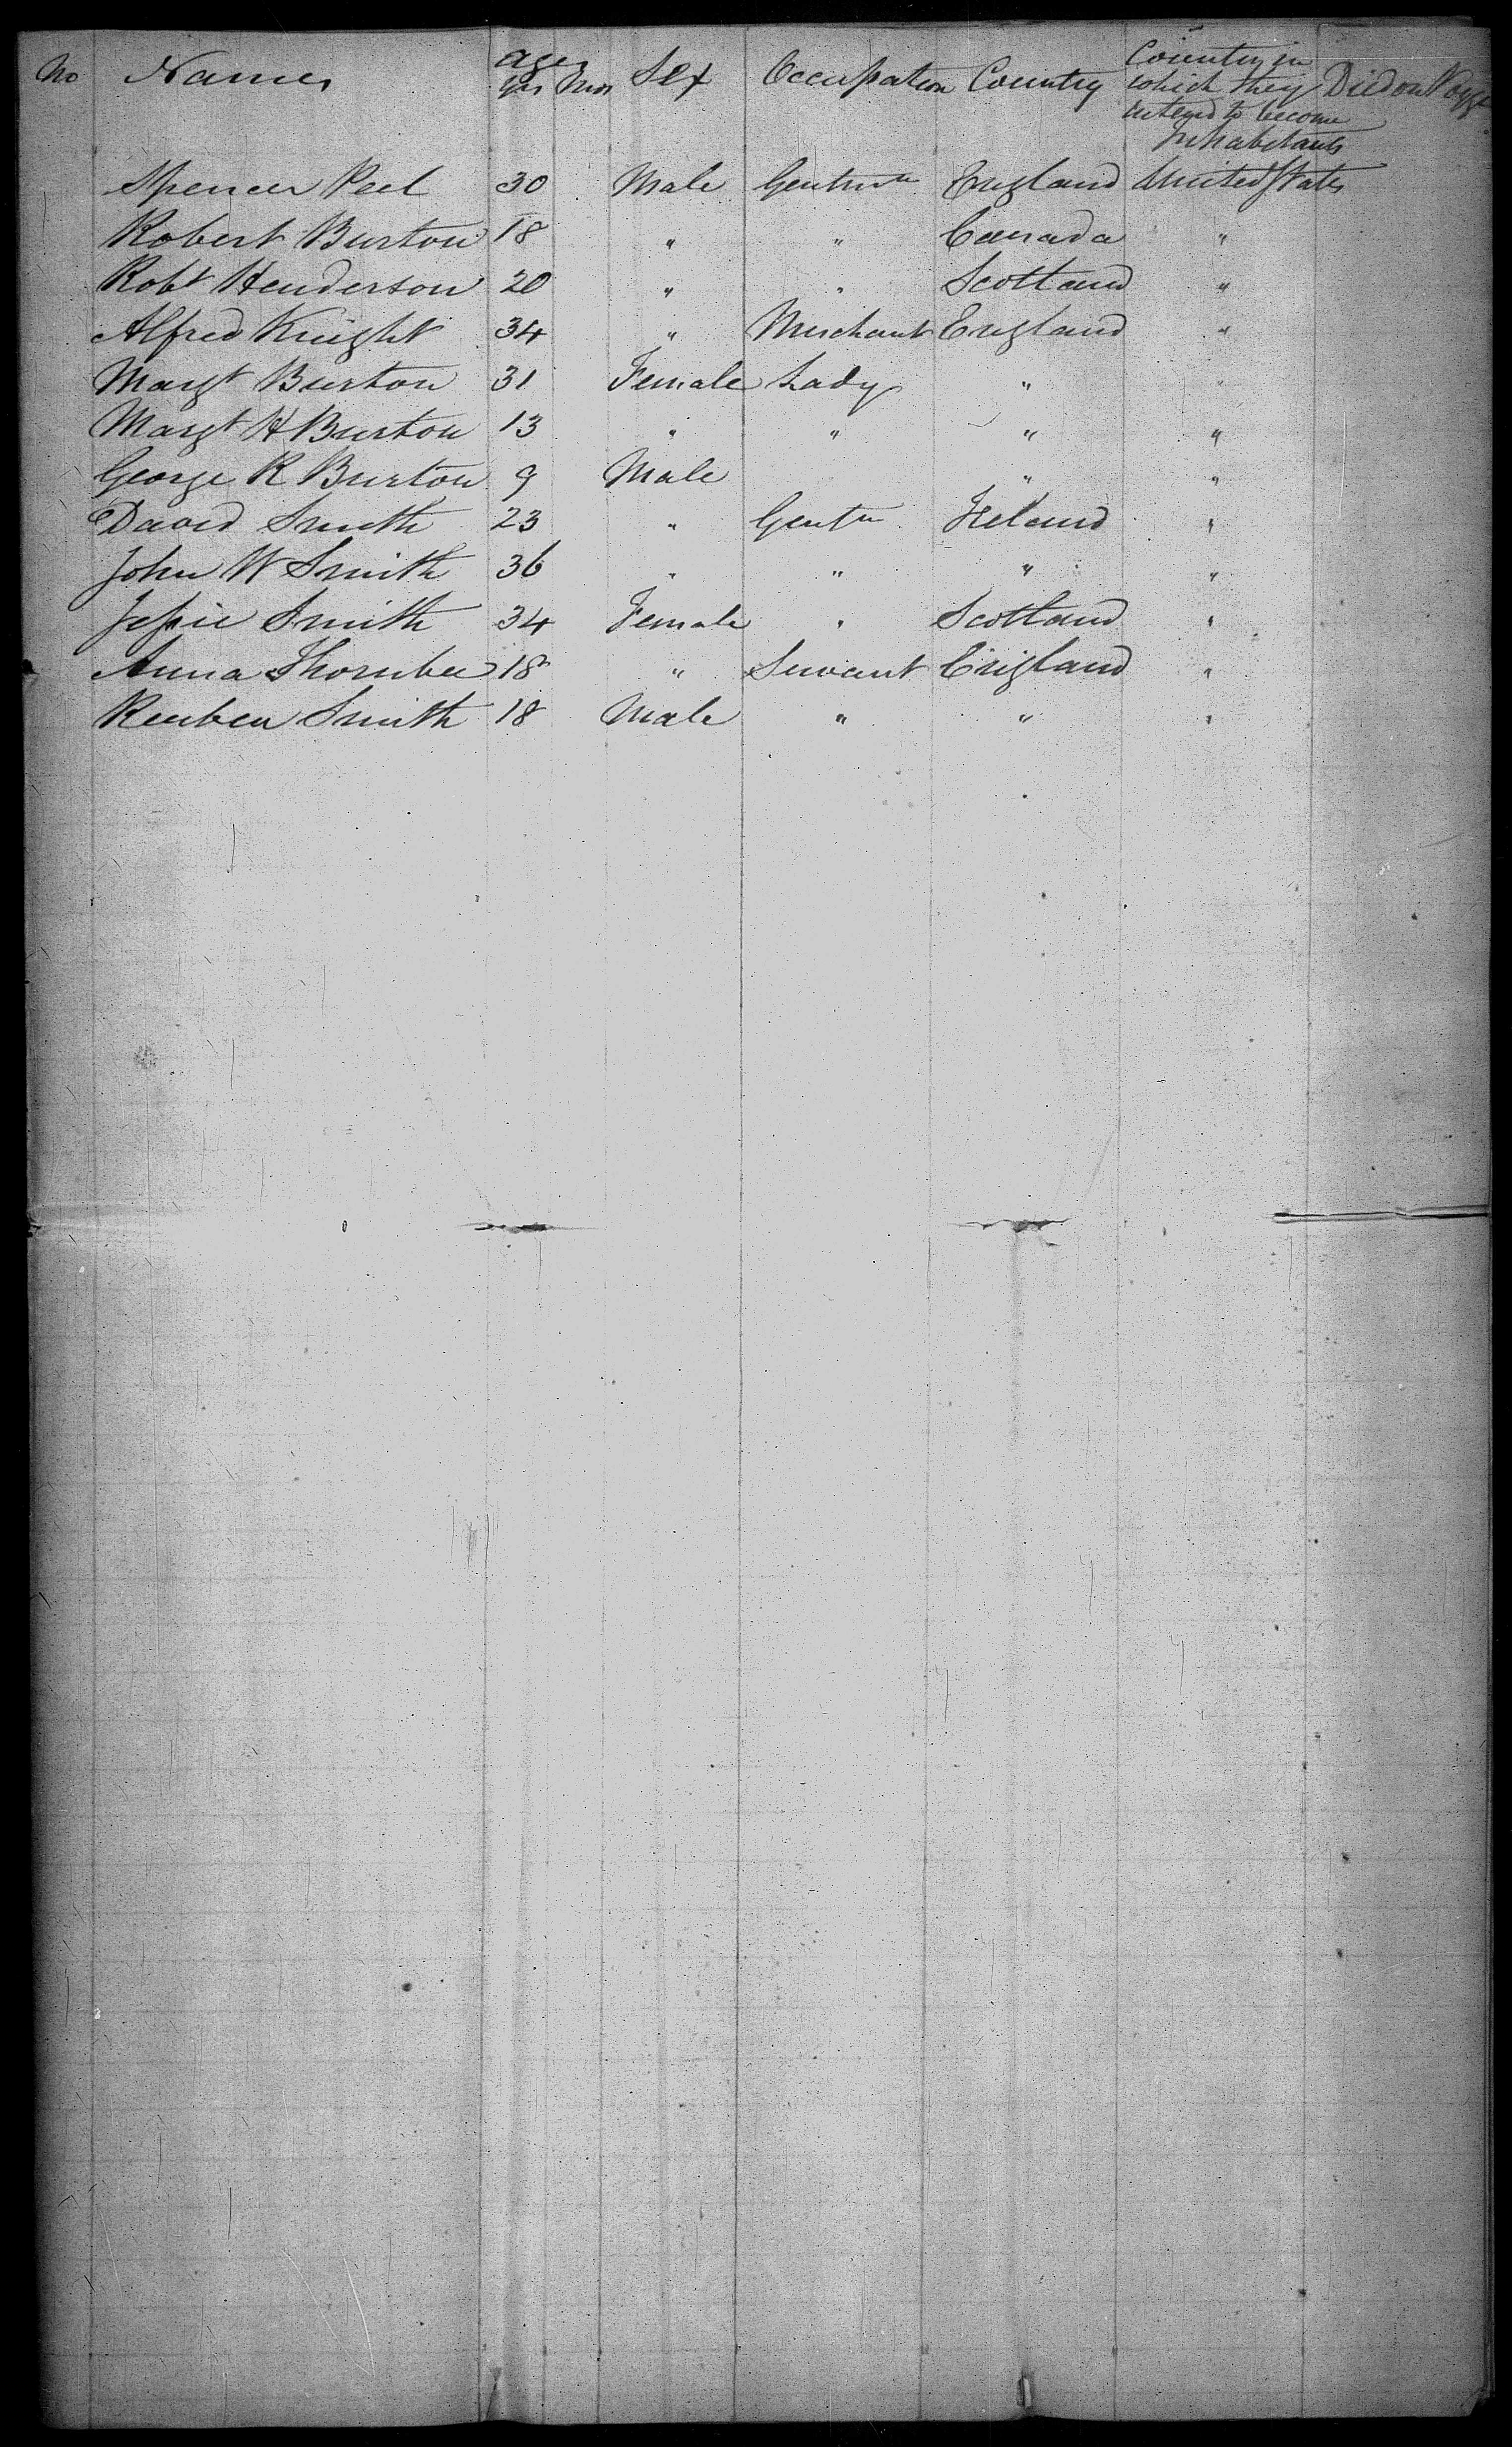 No Names Ages Yrs Mos Sex Occupation Country Country in which they intend to become Inhabitants Died on Voyge
Spencer Peel 30 Male Gentn England United States
Robert Burton 18 " " Canada "
Robt Henderson 20 " " Scotland "
Alfred Knight 34 " Merchant England "
Margt Burton 31 Female Lady " "
Margt H Burton 13 " " " "
George R Burton 9 Male " "
David Smith 23 " Gentn Ireland "
John W Smith 36 " " " "
Jessie Smith 34 Female " Scotland "
Anna Thornber 18 " Servant England "
Reuben Smith 18 Male " " "